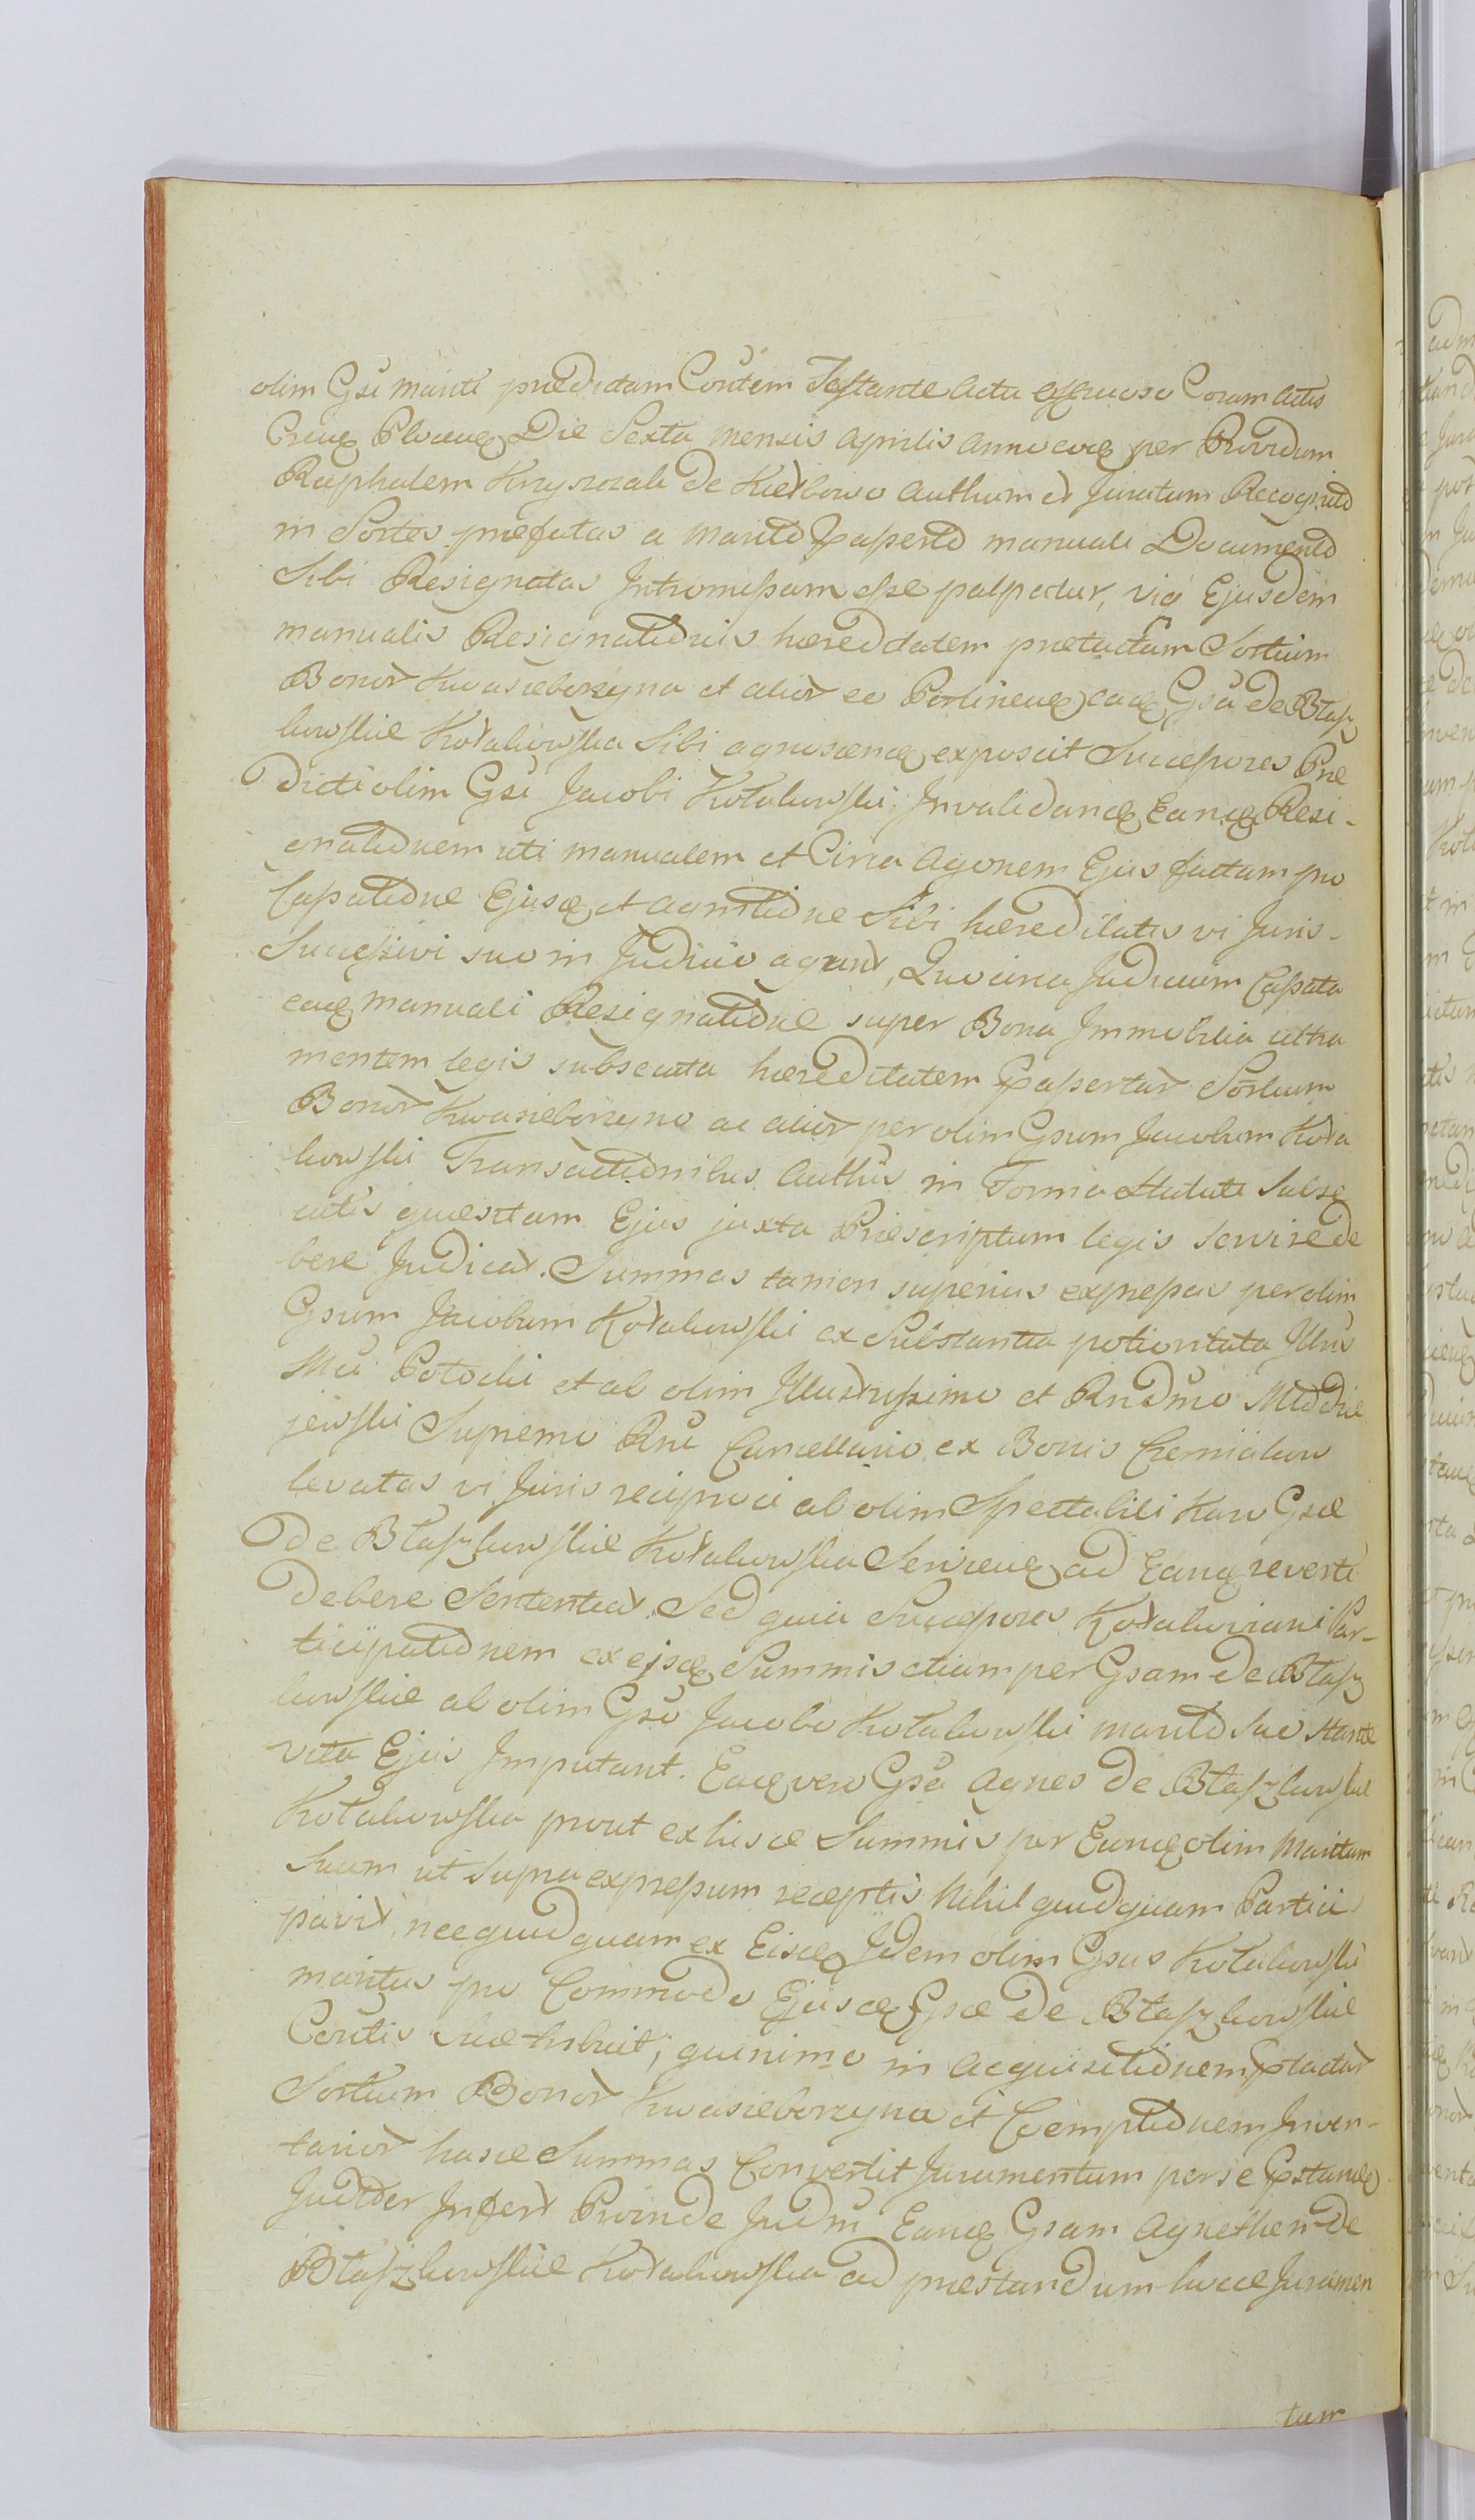 olim Gsi Mariti prædictam Coũtem Testante Actu Coram Actis
Die Sexta Mensis Aprilis Anno per Providum
Raphalem Kryszczak de Kiełbowo Authũm et Juratum
in Sortes præfatas a Marito manuali Documento
Sibi Resignatas Intromissam esse palpatur, via Ejusdem
manualis Resignationis hæreditatem prætactam Sortium
Bonor Kwasieborzyna et alior eo Gsa de Błasz
kowskie Kotakowska Sibi exposcit Successores Præ
dicti olim Gsi Jacobi Kotakowski Invalidanq Eanq Resi-
gnationem uti manualem et Circa Agonem Ejus factam pro
Cassatione Ejusq et agnitione Sibi hæreditatis vi Juris-
Successivi suo in Judicio agunt, Quocirca Judicium Cassata
eaq manuali Resignatione super Bona Immobilia ultra
mentem legis subsecuta hæreditatem Sortium
Bonor Kwasieborzyno ac alior per olim Gsum Jacobum Kota
kowski Transactionibus Authis in Forma Statuti Subse
cutis quæsitam Ejus juxta Præscriptum legis servire de
bere Judicat. Summas tamen superius expressas per olim
Gsum Jacobum Kotakowski ex Substantia potioritata Illris
Potocki et ab olim Illustrissimo et Rndmo Młodzie
jewski Supremo Rni Cancellario ex Bonis
levatas vi Juris reciproci ab olim Spectabili Karo Gsæ
de Błaszkowskie Kotakowska ad Eanq reverti
debere Sententiat. Sed quia Successores Kotakoviani Par-
ticipationem ex ejsq Summis etiam per Gsam de Błasz
kowskie ab olim Gso Jacobo Kotakowski marito suo stante
vita Ejus Imputant. Eaq vero Gsa Agnes de Błaszkowskie
Kotakowska prout ex hisce Summis per Eunq olim Maritum
Suum ut supra expressum receptis Nihil quidquam Partici
pavit, nec quidquam ex Eisq Idem olim Gsus Kotakowski
maritus pro Commodo Ejusq Gsæ de Błaszkowskie
Coũtis suæ tribuit; quinimo in Acquisitionem
Sortium Bonor Kwasieborzyna et Coemptionem Inven-
tarior hasce Summas Convertit Juramentum per se
Judter Infert Proinde Judm Eanq Gsam Agnethen de
Błaszkowskie Kotakowska ad præstandum hocce Juramen
tum